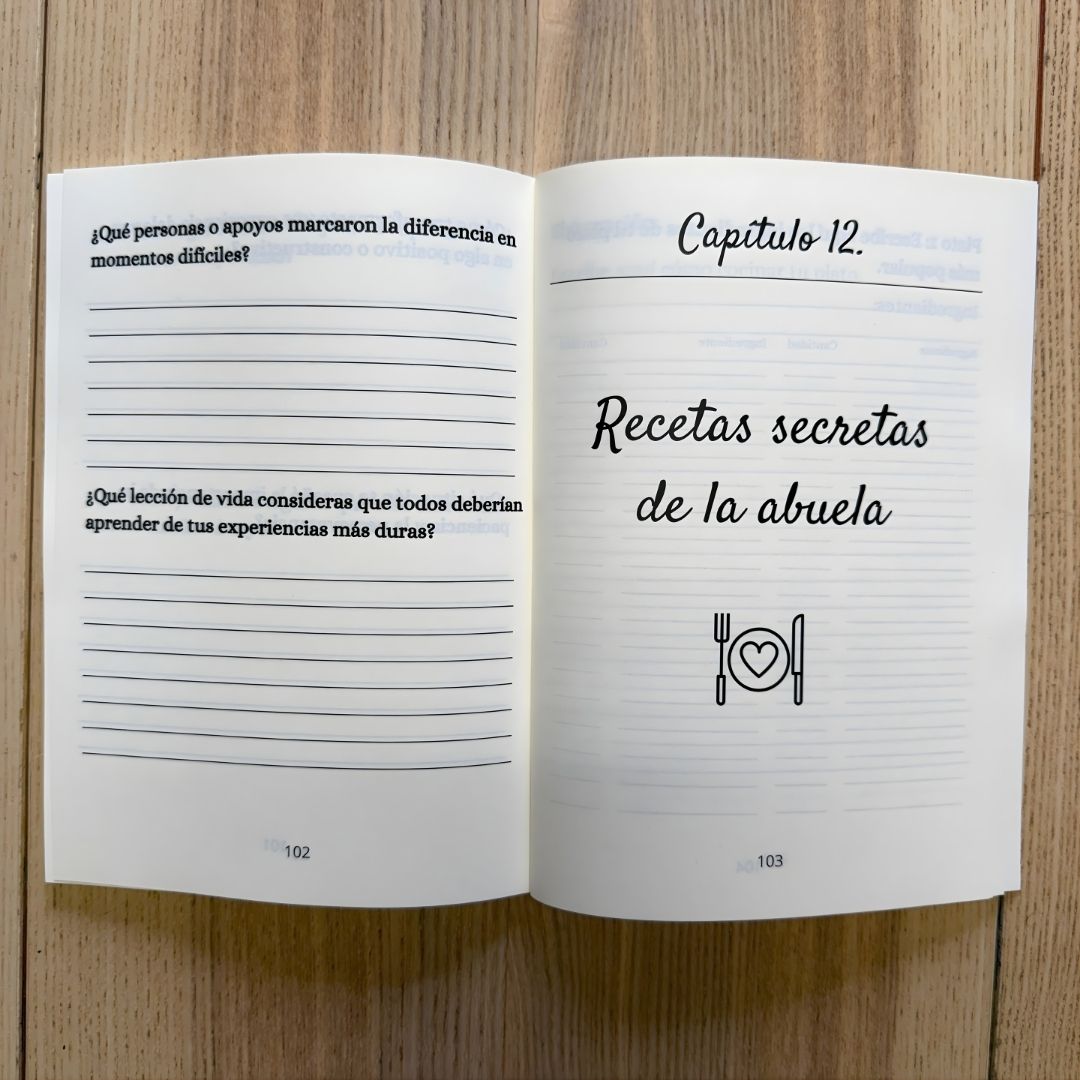 ¿Qué personas o apoyos marcaron la diferencia en
momentos difíciles?
¿Qué lección de vida consideras que todos deberían
aprender de tus experiencias más duras?
102
Capítulo 12.
Recetas secretas
de la abuela
103